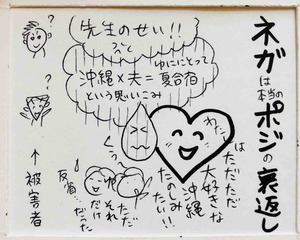 ネガは本当のポジの裏返し
先生のせい!!
ゆににとって
沖縄×夫=夏合宿
という思いこみ
わたしは
ただただ
大好きな
沖縄
たのしみ
たい!!
ただ
それ
だけ
反省…だった
?
?
↑被害者